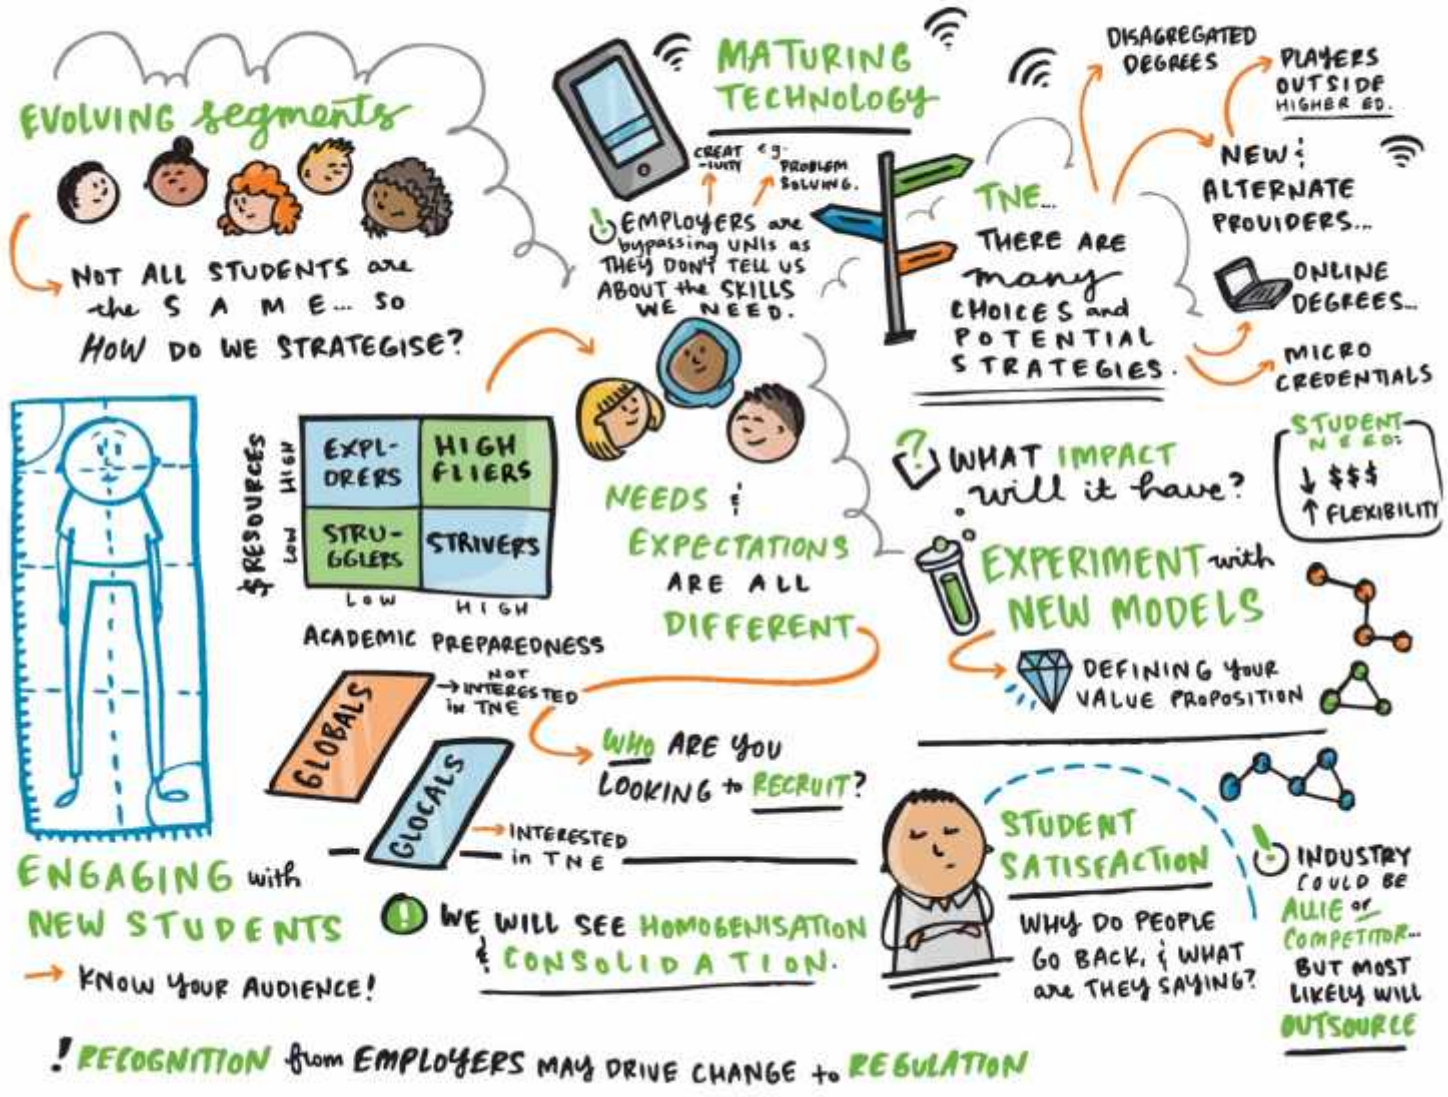 EVOLVING segments
NOT ALL STUDENTS are
the SAME... SO
HOW DO WE STRATEGISE?
MATURING
TECHNOLOGY
CREAT
-IVITY
eg.
PROBLEM
SOLVING.
! EMPLOYERS are
bypassing UNIs as
THEY DON'T TELL US
ABOUT the SKILLS
WE NEED.
TNE...
THERE ARE
many
CHOICES and
POTENTIAL
STRATEGIES.
DISAGREGATED
DEGREES
PLAYERS
OUTSIDE
HIGHER ED.
NEW &
ALTERNATE
PROVIDERS...
ONLINE
DEGREES...
MICRO
CREDENTIALS
$ RESOURCES
HIGH
LOW
EXPL-
ORERS
HIGH
FLIERS
STRU-
GGLERS
STRIVERS
LOW
HIGH
ACADEMIC PREPAREDNESS
NEEDS &
EXPECTATIONS
ARE ALL
DIFFERENT
? WHAT IMPACT
will it have?
STUDENT
NEED:
↓ $$$
↑ FLEXIBILITY
EXPERIMENT with
NEW MODELS
DEFINING YOUR
VALUE PROPOSITION
GLOBALS
→ NOT
INTERESTED
in TNE
GLOCALS
→ INTERESTED
in TNE
WHO ARE YOU
LOOKING to RECRUIT?
ENGAGING with
NEW STUDENTS
→ KNOW YOUR AUDIENCE!
! WE WILL SEE HOMOGENISATION
& CONSOLIDATION.
STUDENT
SATISFACTION
WHY DO PEOPLE
GO BACK, & WHAT
are THEY SAYING?
! INDUSTRY
COULD BE
ALLIE or
COMPETITOR...
BUT MOST
LIKELY WILL
OUTSOURCE
! RECOGNITION from EMPLOYERS MAY DRIVE CHANGE to REGULATION